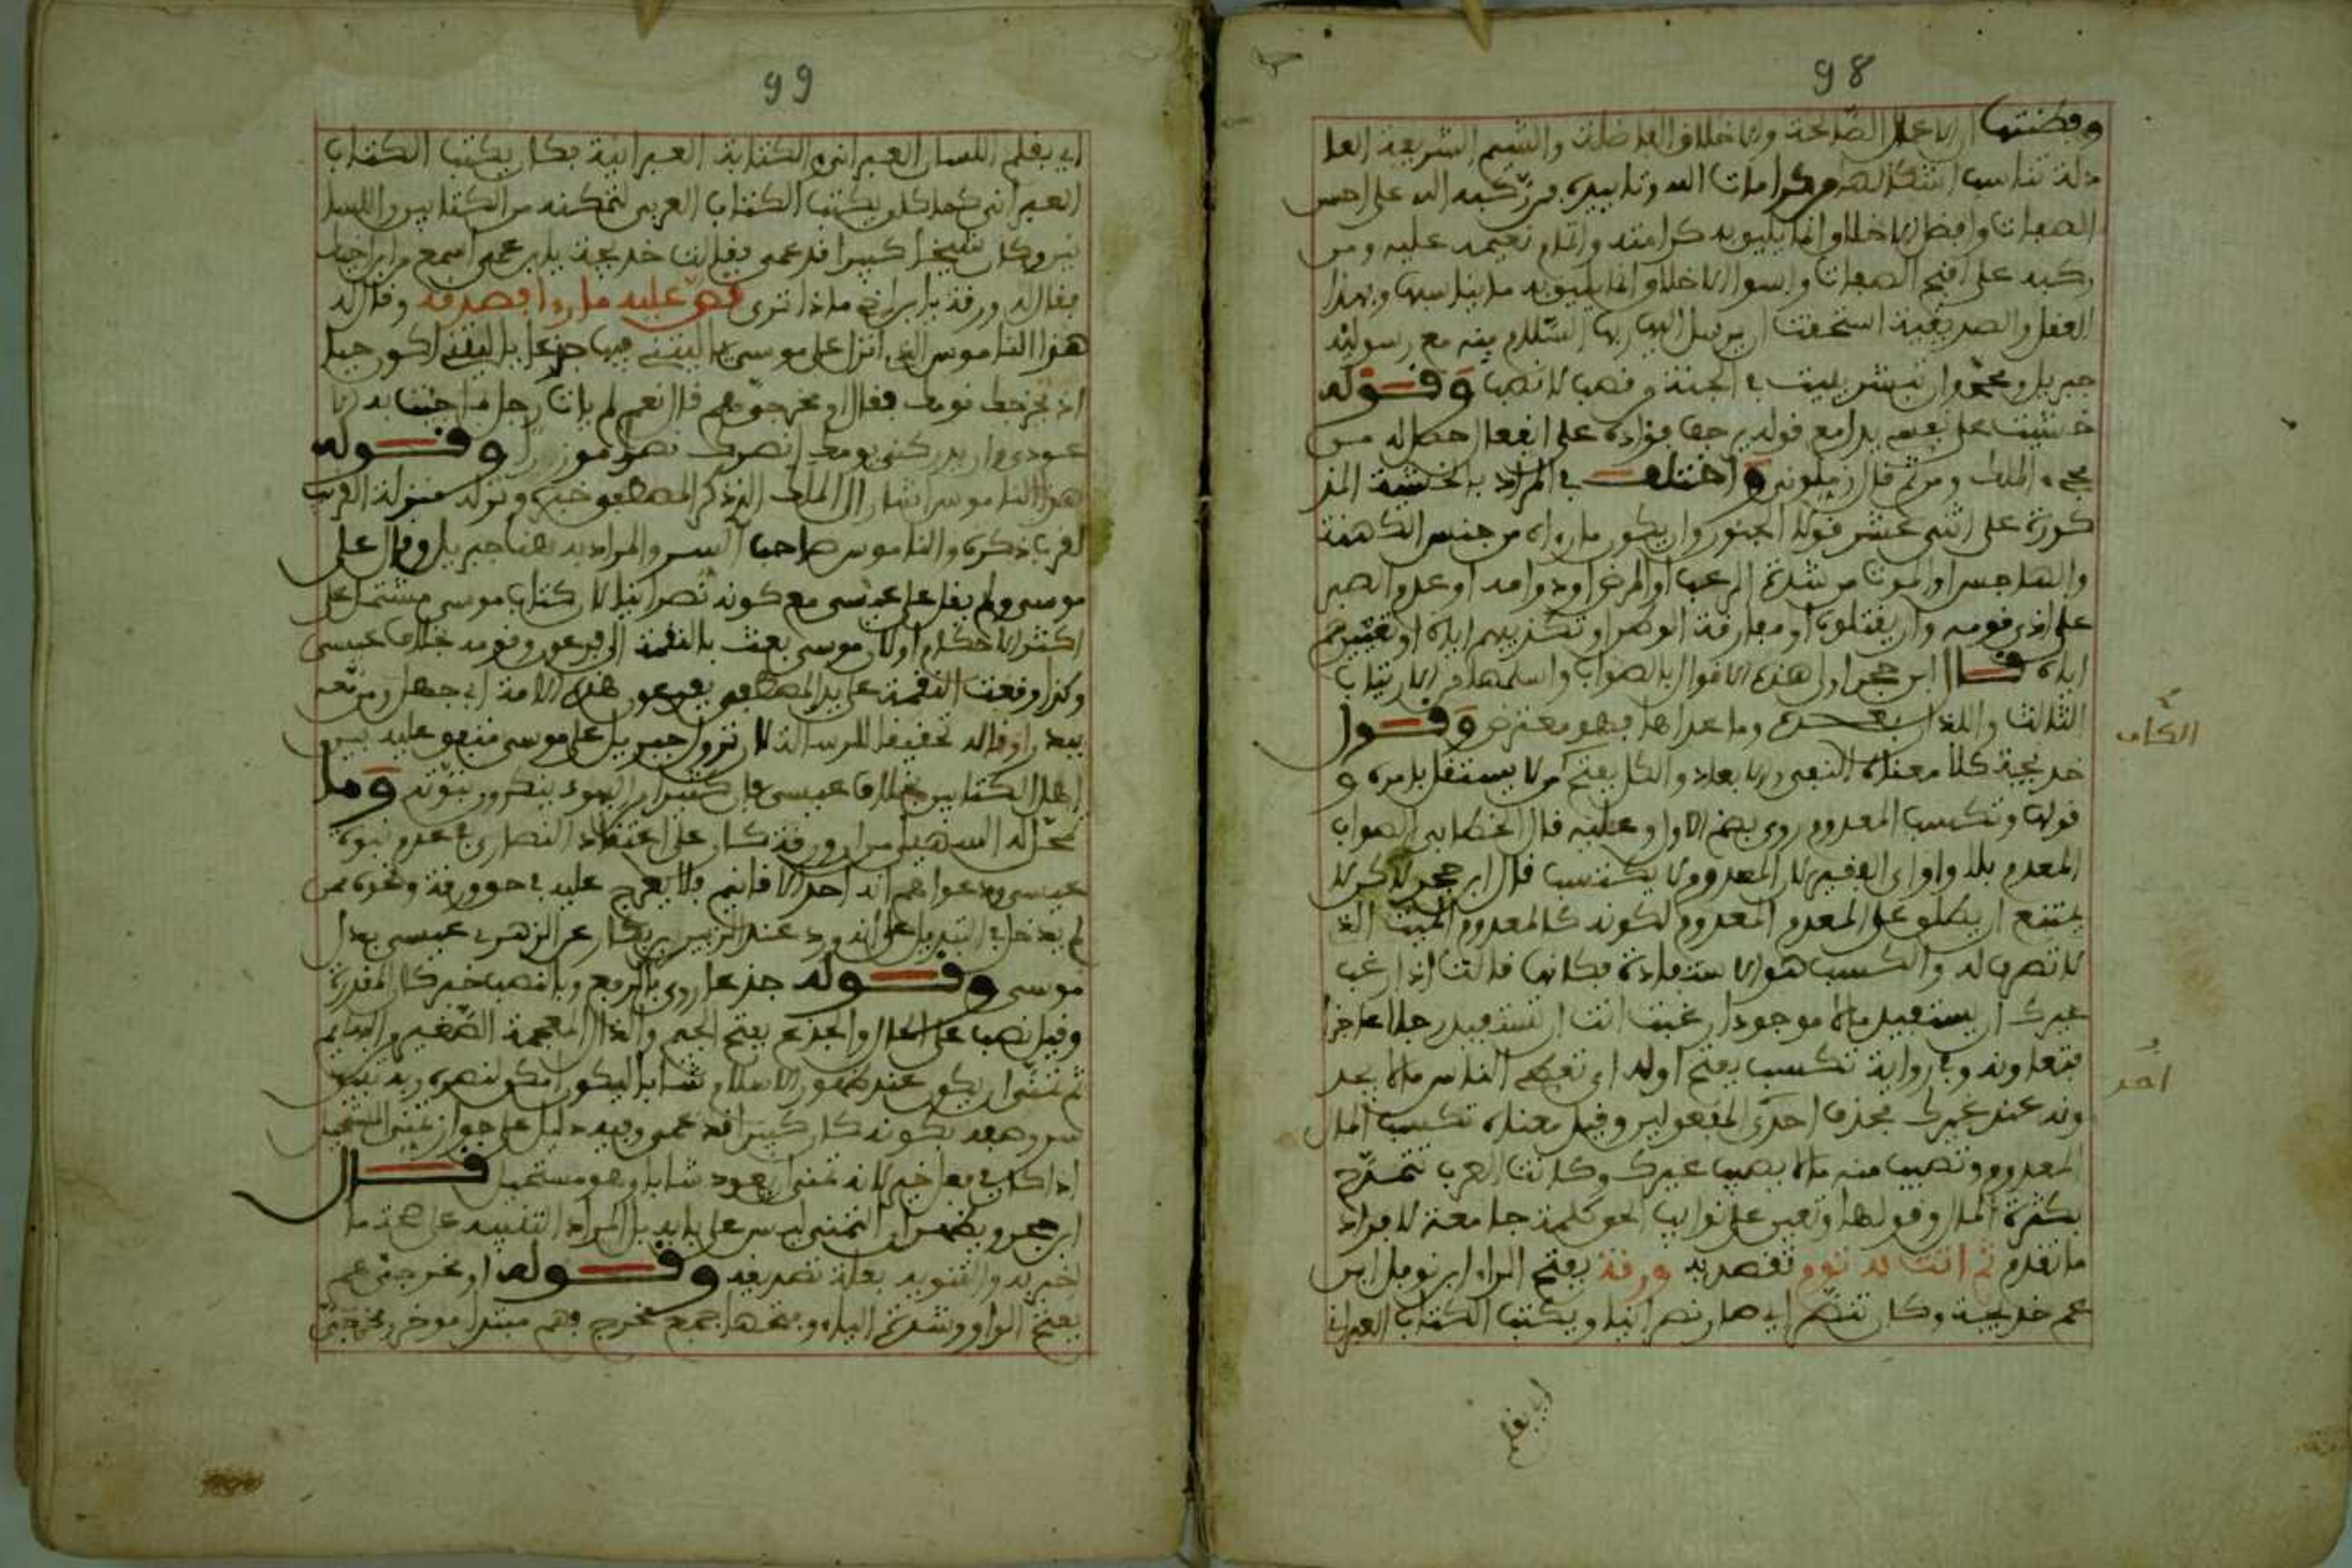 98
وفطنتها ان الاعمال الصالحة والاخلاق الفاضلة والشيم الشريفة العا
دلة تناسب اشكالها من كرامات الله وتاييده فمن ركبه الله على احسن
الصفات وافضل الاخلاق انما يليق به كرامته واتمام نعمه عليه ومن
ركبه على اقبح الصفات واسوا الاخلاق انما يليق به ما يناسبها وبهذا
العقل والصديقية استحقت ان يرسل اليها ربها السلام منه مع رسوليه
جبريل ومحمد وان تبشر ببيت في الجنة من قصب لا نصب وقوله
خشيت على نفسي مع قوله يرجف فؤاده على انفعال حصل له من
مجيء الملك ومن ثم قال زملوني واختلف في المراد بالخشية المذ
كورة على اثني عشر قولا الجنون وان يكون ما رءاه من جنس الكهنة
والهاجس او الموت من شدة الرعب او المرض او دوامه او عدم الصبر
على اذى قومه وان يقتلوه او مفارقة الوطن او تكذيبهم اياه او تعييرهم
اياه قال ابن حجر اولى هذه الاقوال بالصواب واسلمها من الارتياب
الثالث واللذان بعده وما عداها فهو معترض وقول
خديجة كلا معناه النفي والابعاد والكل بفتح من لا يستقل بامره و
قولها وتكسب المعدوم روي بضم الاول وعليه قال الخطابي الصواب
المعدم بلا واو اي الفقير لان المعدوم لا يكتسب قال ابن حجر لاكن لا
يمتنع ان يطلق على المعدم المعدوم لكونه كالمعدوم الميت الذي
لا تصرف له والكسب هو الاستفادة فكانها قالت اذا رغب
غيرك ان يستفيد مالا موجودا رغبت انت ان تستفيد رجلا عاجزا
فتعاونه وفي رواية تكسب بفتح اوله اي تعطي الناس مالا يجد
ونه عند غيرك بحذف احدى المفعولين وقيل معناه تكسب المال
المعدوم وتصيب منه مالا يصيب غيرك وكانت العرب تتمدح
بكثرة المال وقولها وتعين على نوائب الحق كلمة جامعة لافراد
ما تقدم ثم اتت به تؤم تقصد به ورقة بفتح الراء ابن نوفل ابن
عم خديجة وكان تنصر اي صار نصرانيا ويكتب الكتاب العبراني
الكاف
احد
اي يعلم
99
اي يعلم اللسان العبراني والكتابة العبرانية فكان يكتب الكتاب
العبراني كما كان يكتب الكتاب العربي لتمكنه من الكتابين واللسا
نين وكان شيخا كبيرا قد عمي فقالت خديجة يا ابن عمي اسمع من ابن اخيك
فقال له ورقة يا ابن اخي ماذا ترى فقص عليه ما رءا فصدقه وقال له
هذا الناموس الذي انزل على موسى يا ليتني فيها جذعا يا ليتني اكون حيا
اذ يخرجك قومك فقال او مخرجي هم قال نعم لم يات رجل بما جئت به الا
عودي وان يدركني يومك انصرك نصرا موزرا وقوله
هذا الناموس اشار الى الملك الذي ذكر المصطفى خبره ونزله منزلة القريب
لقرب ذكره والناموس صاحب السر والمراد به هنا جبريل وقال على
موسى ولم يقل على عيسى مع كونه نصرانيا لان كتاب موسى مشتمل على
اكثر الاحكام او لان موسى بعث بالنقمة الى فرعون وقومه بخلاف عيسى
وكذا وقعت النقمة على يد المصطفى بفرعون هذه الامة ابي جهل ومن معه
ببدر او قاله تحقيقا للرسالة لان نزول جبريل على موسى متفق عليه بين
اهل الكتابين بخلاف عيسى فان كثيرا من اليهود ينكرون نبوته وما
تمحل له السهيلي من ان ورقة كان على اعتقاد النصارى في عدم نبوة
عيسى ودعواهم انه احد الاقانيم فلا يعرج عليه في حق ورقة ونحوه ممن
لم يدخل في التبديل على انه ورد عند الزبير بن بكار عن الزهري عيسى بدل
موسى وقوله جذعا روي بالرفع وبالنصب خبر كان المقدرة
وقيل نصب على الحال والجذع بفتح الجيم والذال المعجمة الصغير من البهائم
ثم تمنى ان يكون عند ظهور الاسلام شابا ليكون امكن لنصره وبه تبين
سر وصفه بكونه كان كبيرا قد عمي وفيه دليل على جواز تمني المستحيل
اذا كان في فعل خير لانه تمنى ان يعود شابا وهو مستحيل قال
ابن حجر ويظهر ان التمني ليس على بابه بل المراد التنبيه على صحة ما
اخبر به والتنويه بقوة تصديقه وقوله او مخرجي هم
بفتح الواو وشدة الياء وفتحها جمع مخرج فهم مبتدا موخر ومخرجي